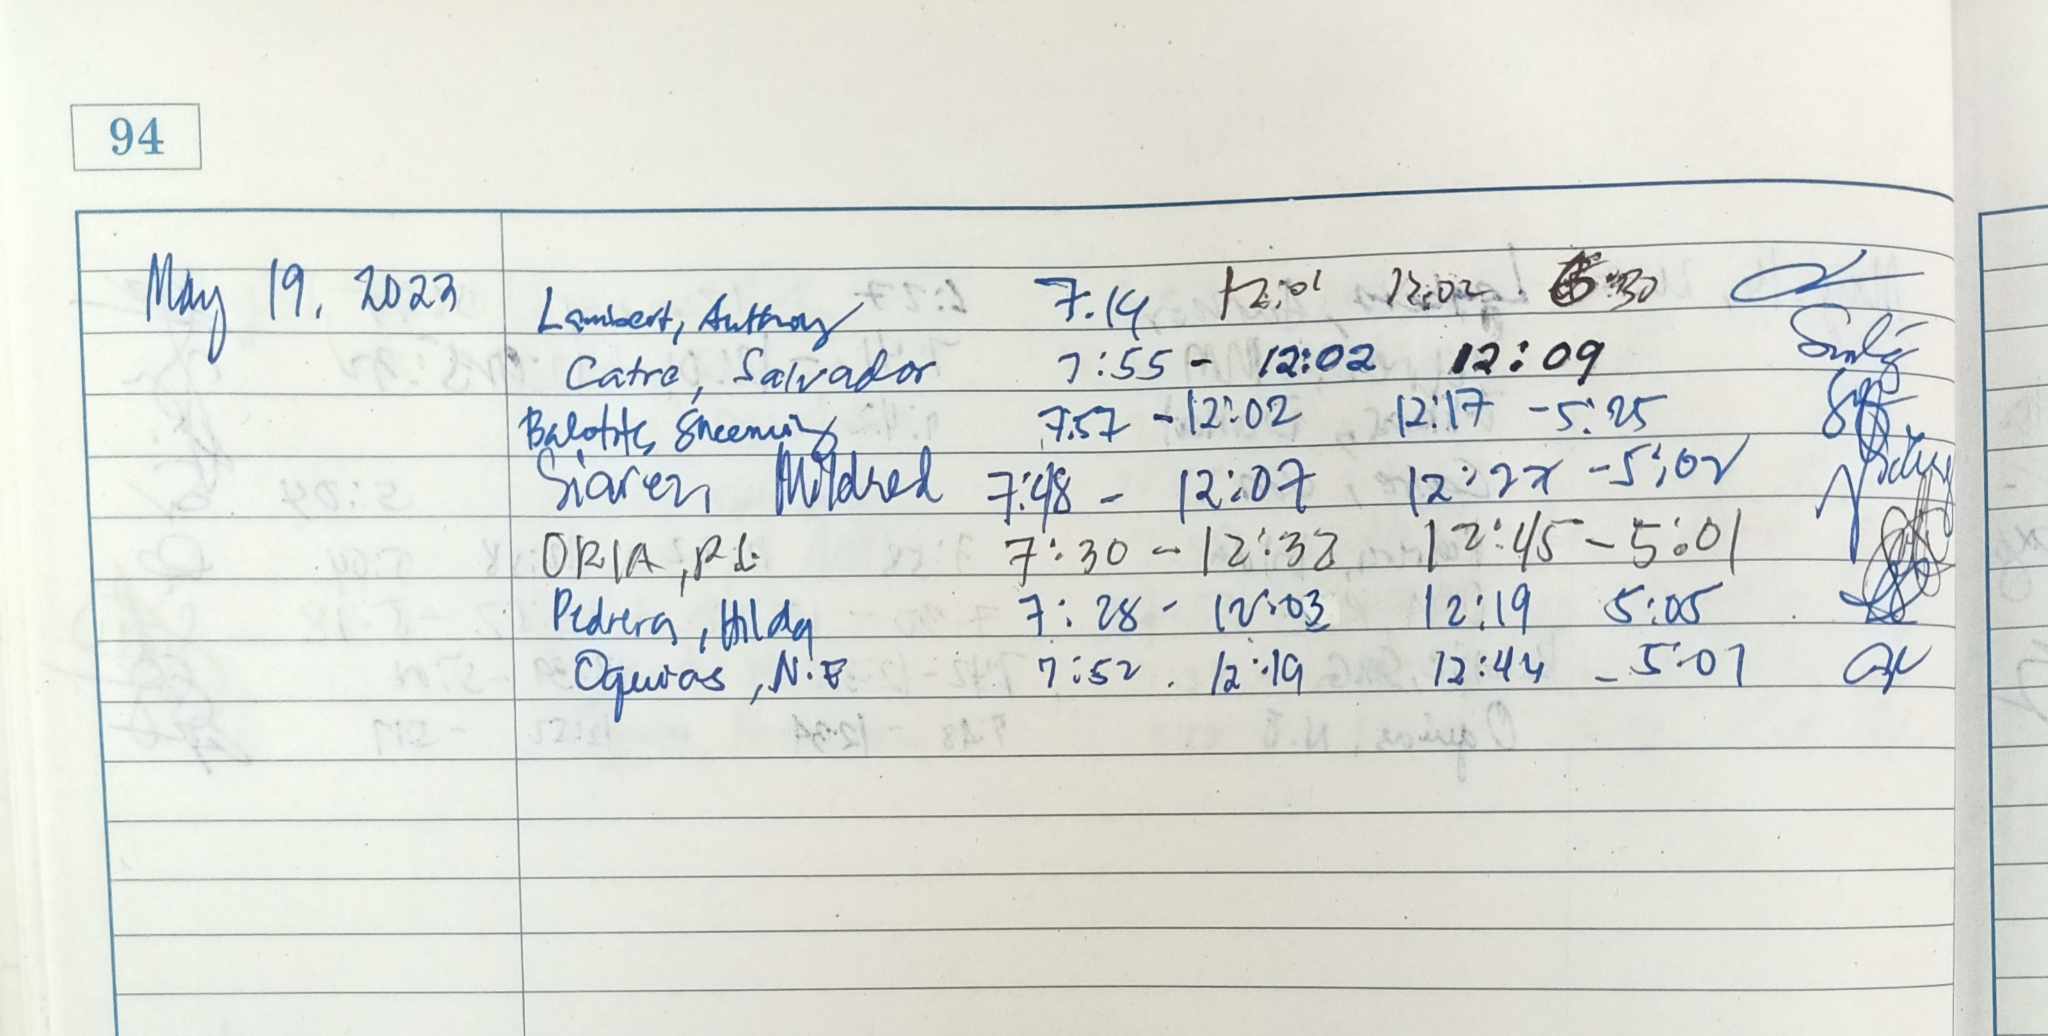 94
May 19, 2023 Lambert, Anthony 7.14 12:01 12:02 :30
Catre, Salvador 7:55 - 12:02 12:09
7:57 - 12:02 12:17 - 5:25
Siarez, Mildred 7:48 - 12:07 12:22 - 5:02
ORIA, P.L. 7:30 - 12:32 12:45 - 5:01
Pedrera, Hilda 7:28 - 12:03 12:19 5:05
Oquias, N.E 7:52 . 12:19 12:44 - 5:07